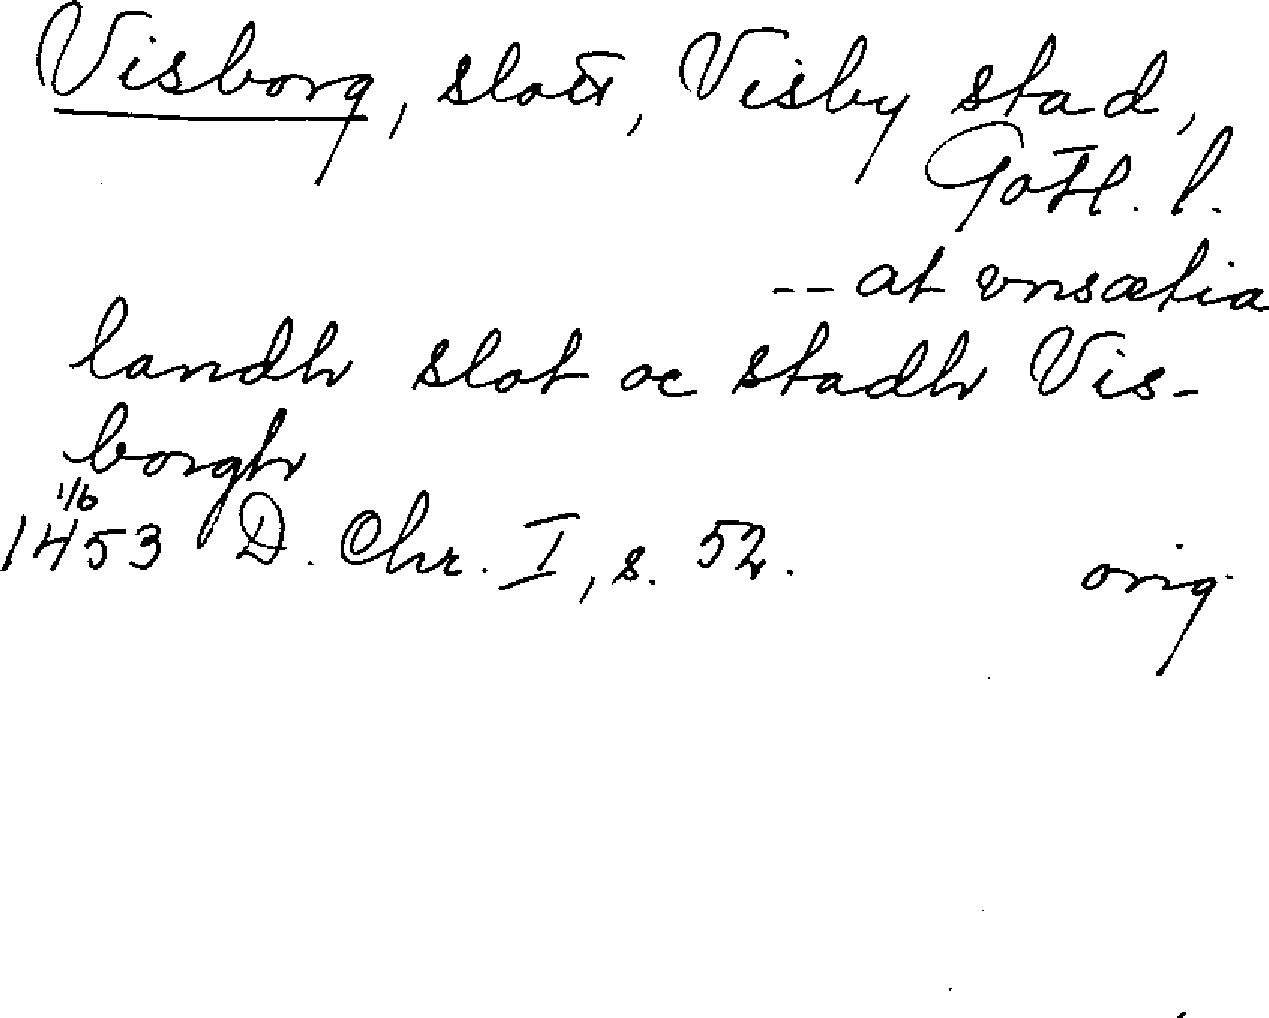 Visborg, slott, Visby stad,
Gotl. l.
-- at vnsætia
landh slot oc stadh Vis-
borgh
1/6
1453 D. Chr. I, s. 52. orig.